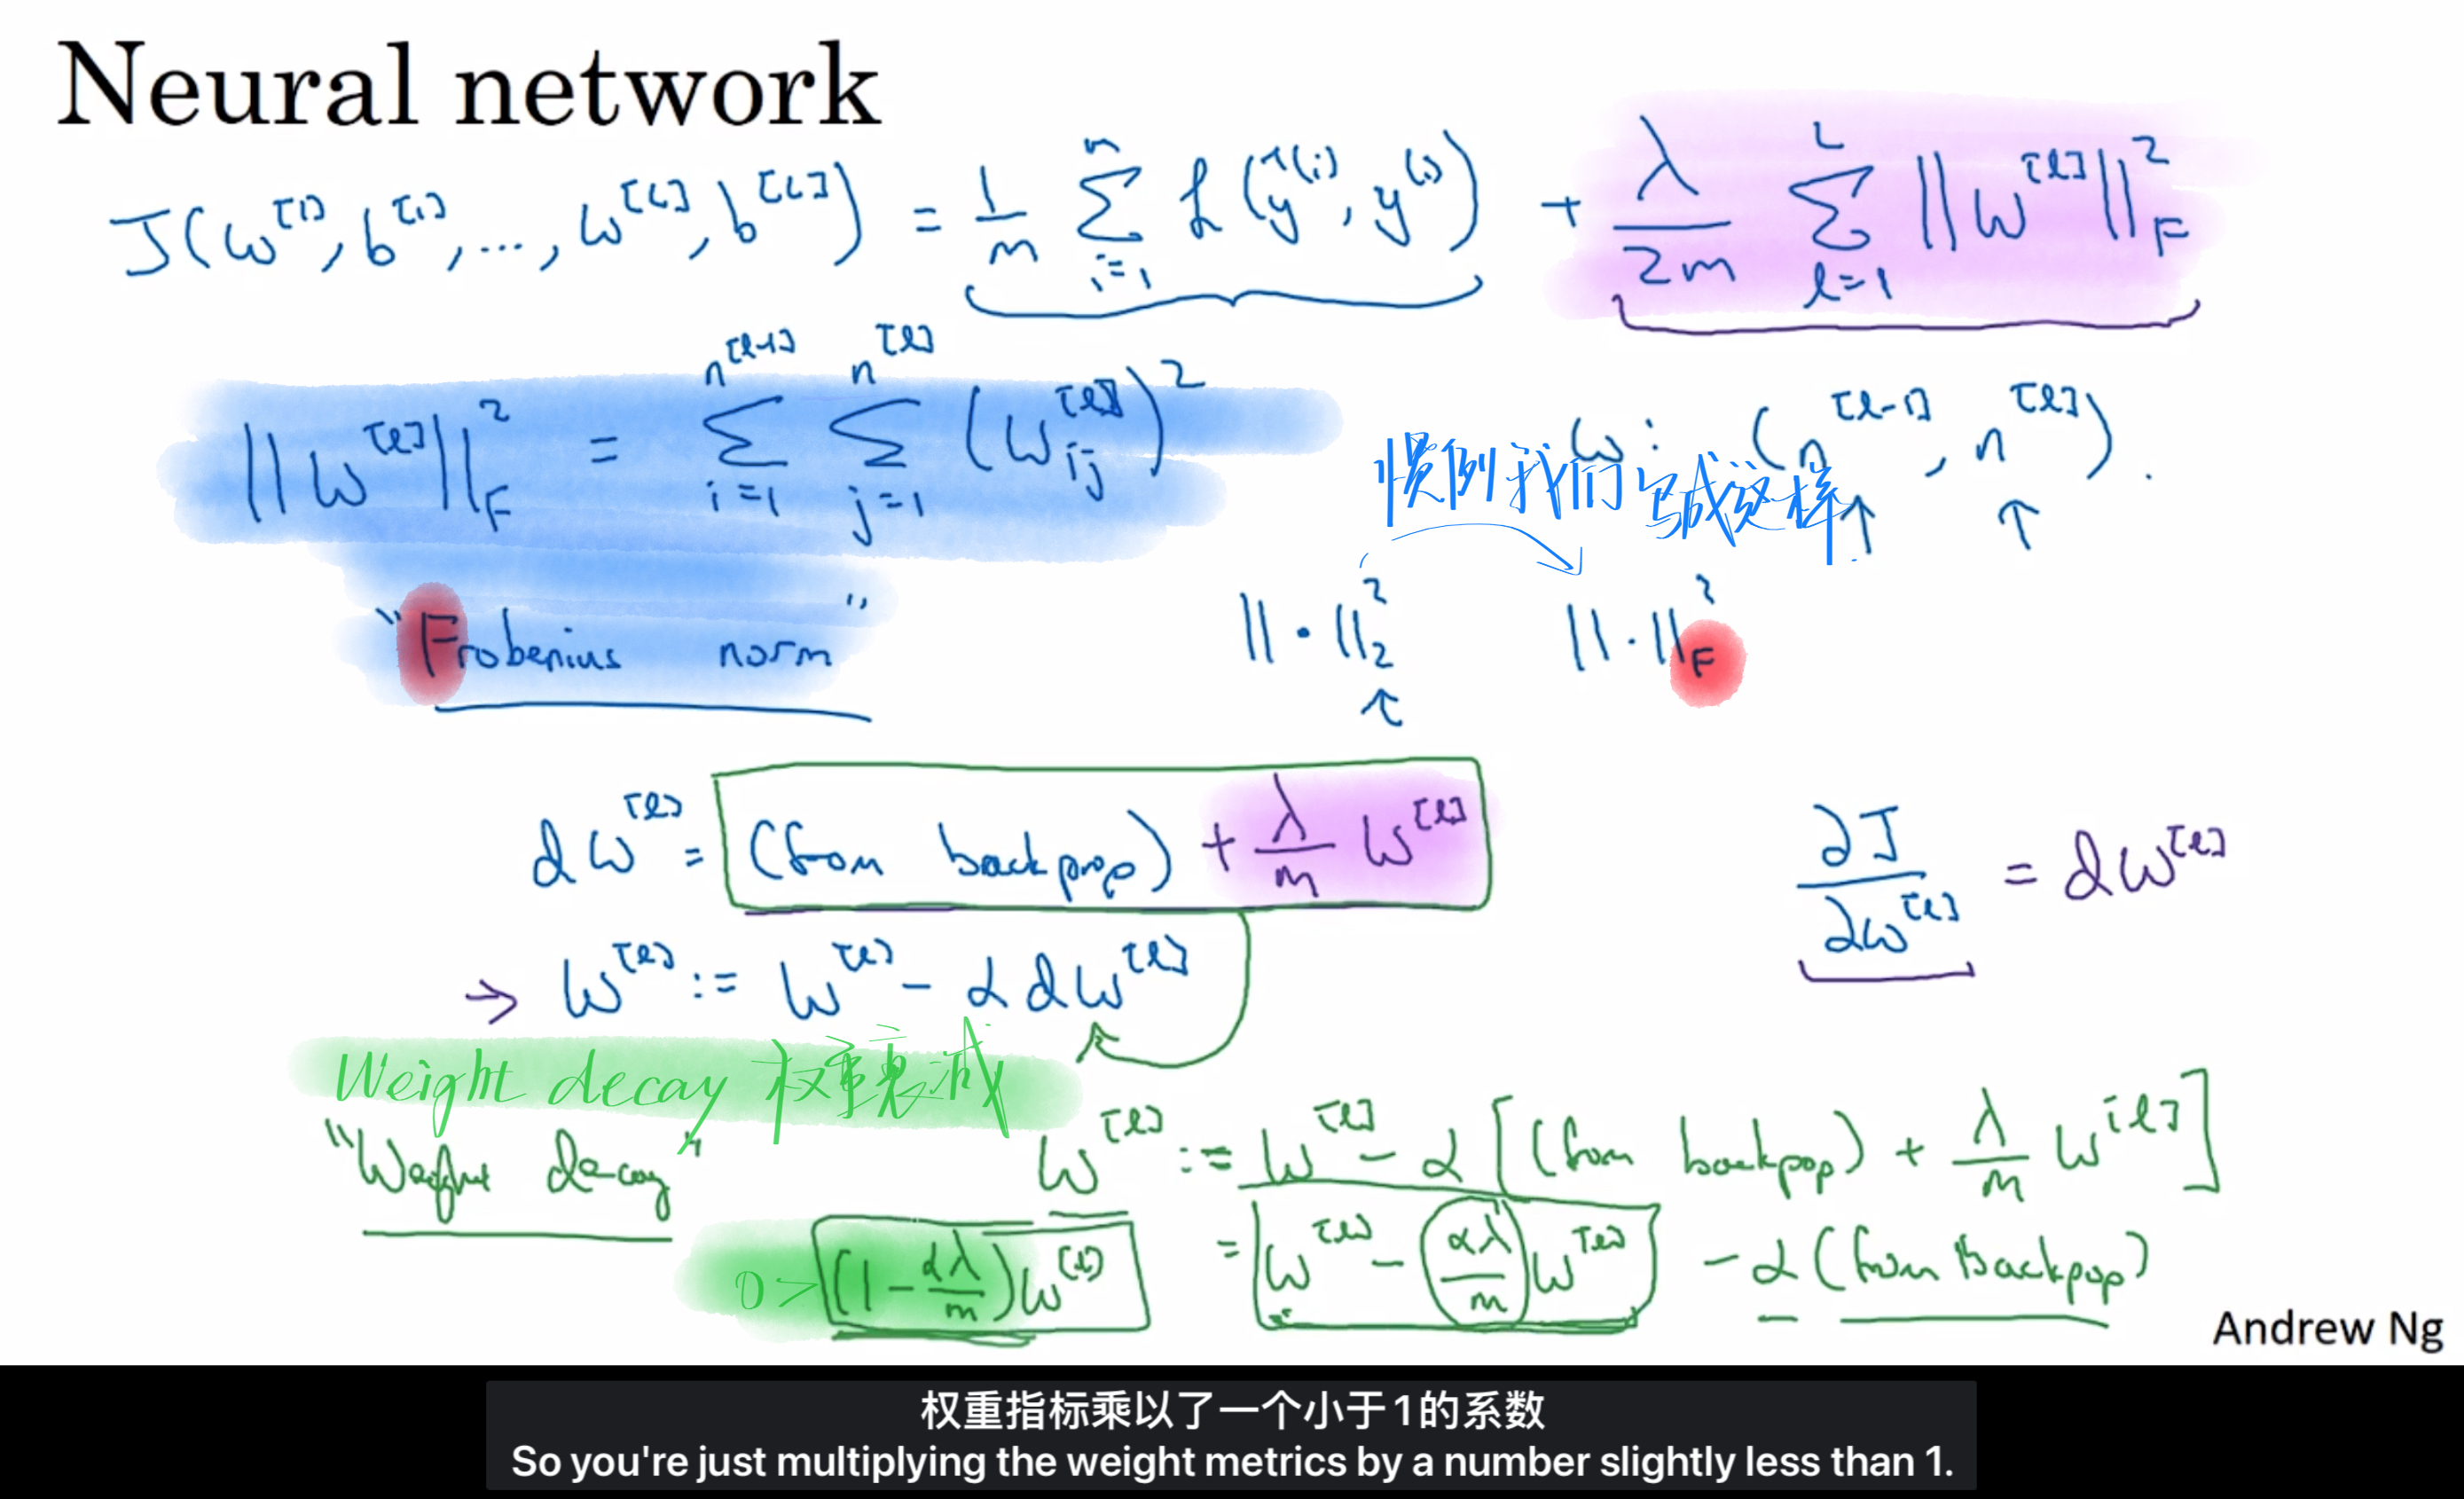 Neural network
J(w^[1], b^[1], ..., w^[L], b^[L]) = 1/m Σ_{i=1}^{m} L(ŷ^(i), y^(i)) + λ/2m Σ_{l=1}^{L} ||w^[l]||_F^2
||w^[l]||_F^2 = Σ_{i=1}^{n^[l-1]} Σ_{j=1}^{n^[l]} (w_ij^[l])^2
w: (n^[l-1], n^[l]).
惯例我们写成这样
"Frobenius norm"
||·||_2^2 ||·||_F^2
dw^[l] = (from backprop) + λ/m w^[l]
∂J/∂w^[l] = dw^[l]
→ w^[l] := w^[l] - α dw^[l]
Weight decay 权重衰减
"Weight decay"
w^[l] := w^[l] - α [(from backpop) + λ/m w^[l]]
= w^[l] - αλ/m w^[l] - α (from backpop)
0 > (1 - αλ/m) w^[l]
Andrew Ng
权重指标乘以了一个小于1的系数
So you're just multiplying the weight metrics by a number slightly less than 1.